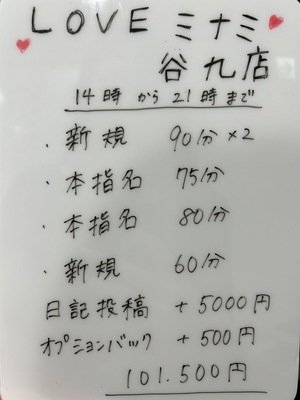 LOVE ミナミ
谷九店
14時から21時まで
・新規 90分×2
・本指名 75分
・本指名 80分
・新規 60分
日記投稿 +5000円
オプションバック +500円
101.500円